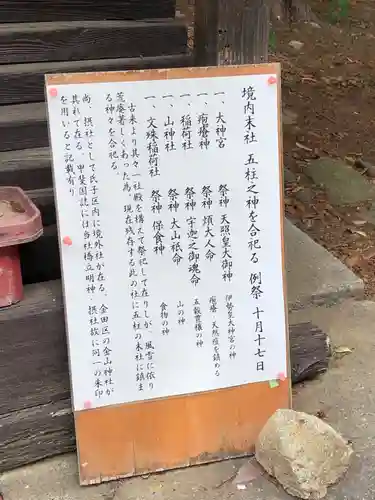 境内末社 五柱之神を合祀る 例祭 十月十七日
一、大神宮 祭神 天照皇大御神 伊勢皇大神宮の神
一、疱瘡神 祭神 煩大人命 疱瘡 天然痘を鎮める
一、稲荷社 祭神 宇迦之御魂命 五穀豊穣の神
一、山神社 祭神 大山祇命 山の神
一、文珠稲荷社 祭神 保食神 食物の神
古来より其々一社殿を構えて祭祀して在りしが、風雪に依り
荒廃著しくあった為、現在残存する此の社に五柱の神を鎮ま
る神々を合祀る。
尚、摂社として氏子区内に境外社が在る。金田区の金山神社が
其れで在る。甲斐国誌には当社橋立明神、摂社故に同一の朱印
を用いると記載有り。